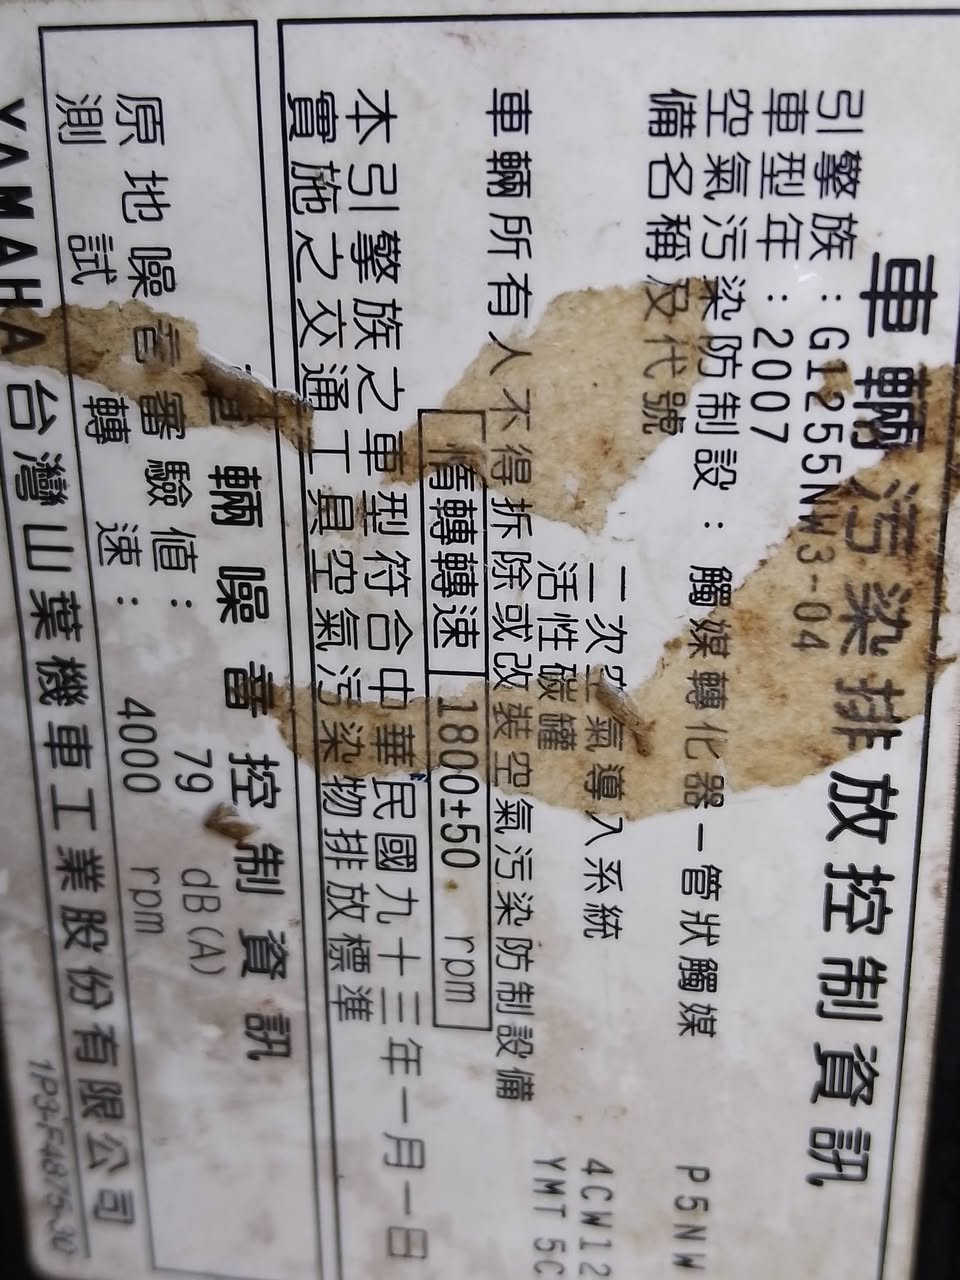 車輛污染排放控制資訊
引擎族：G1255NW3-04
車型年：2007
空氣污染防制設：觸媒轉化器－管狀觸媒 P5NW
備名稱及代號
二次空氣導入系統 4CW12
活性碳罐 YMT 5C
車輛所有人不得拆除或改裝空氣污染防制設備
惰轉轉速 1800±50 rpm
本引擎族之車型符合中華民國九十三年一月一日
實施之交通工具空氣污染物排放標準
車輛噪音控制資訊
原地噪音審驗值：79 dB(A)
測試轉速：4000 rpm
YAMAHA 台灣山葉機車工業股份有限公司
1P3-F4875-30